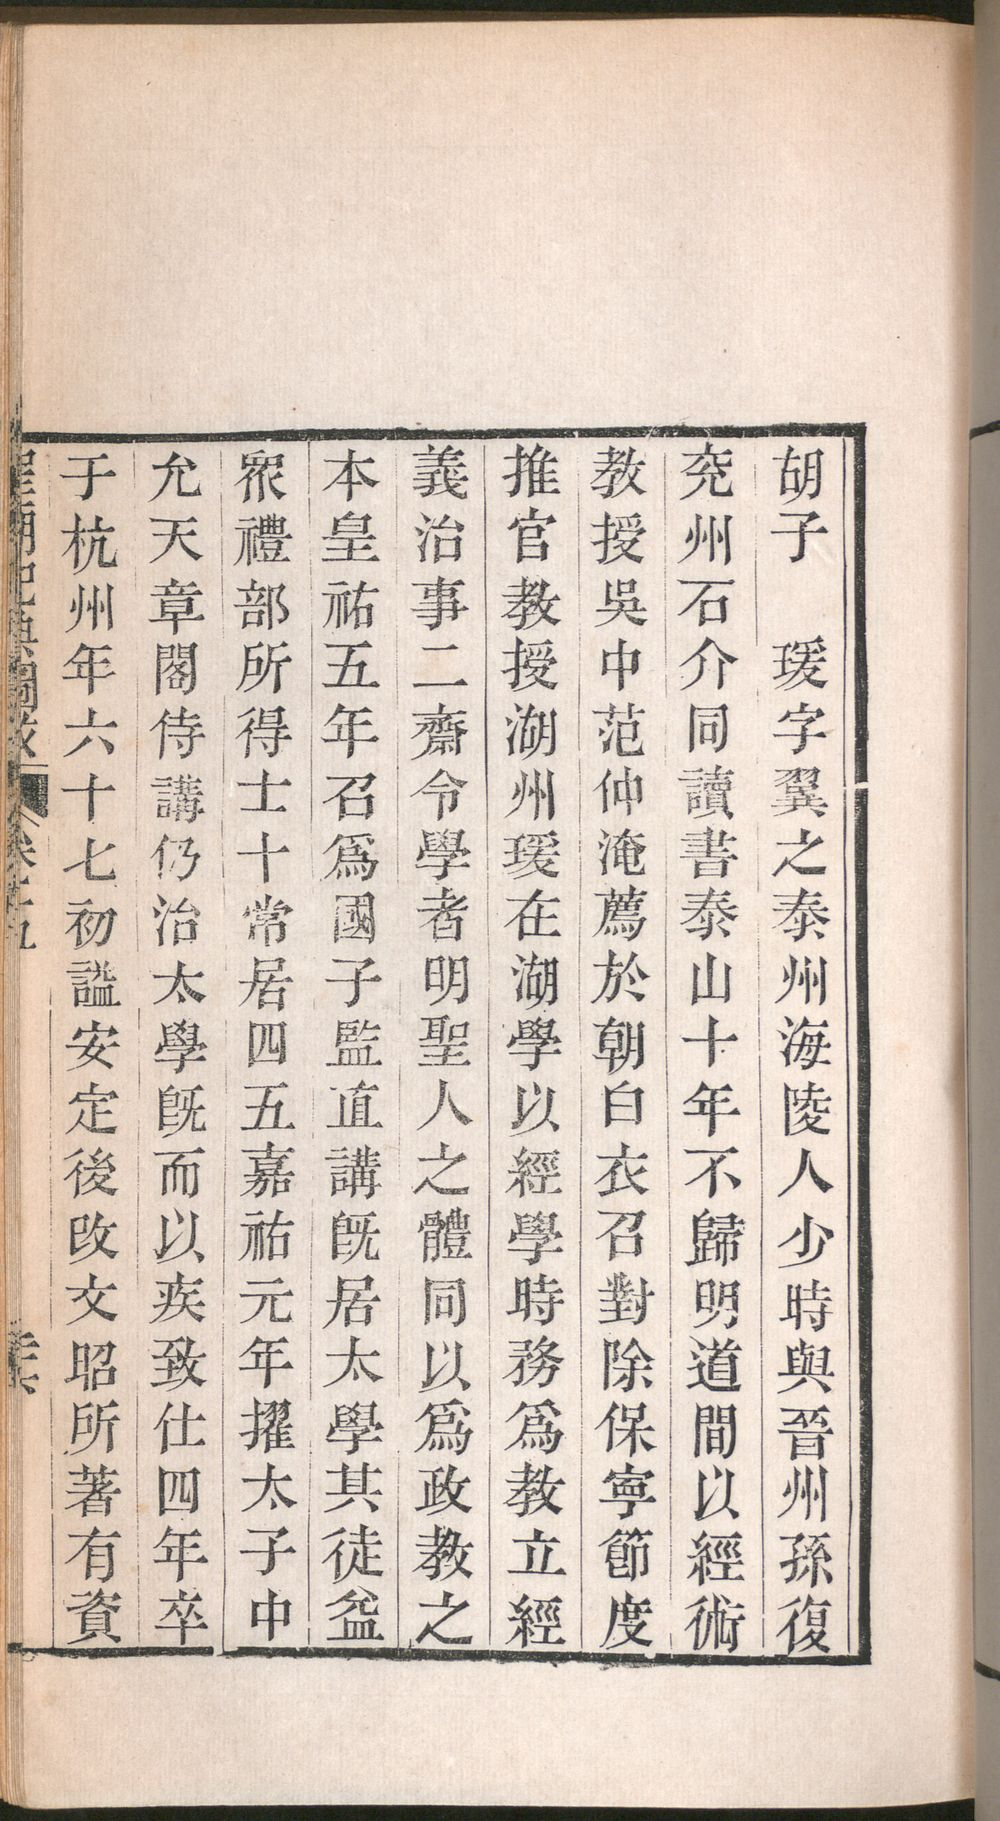 胡子　瑗字翼之泰州海陵人少時與晉州孫復
兖州石介同讀書泰山十年不歸明道間以經術
教授吳中范仲淹薦於朝白衣召對除保寧節度
推官教授湖州瑗在湖學以經學時務為教立經
義治事二齋令學者明聖人之體同以為政教之
本皇祐五年召為國子監直講旣居太學其徒益
眾禮部所得士十常居四五嘉祐元年擢太子中
允天章閣侍講仍治太學旣而以疾致仕四年卒
于杭州年六十七初諡安定後改文昭所著有資